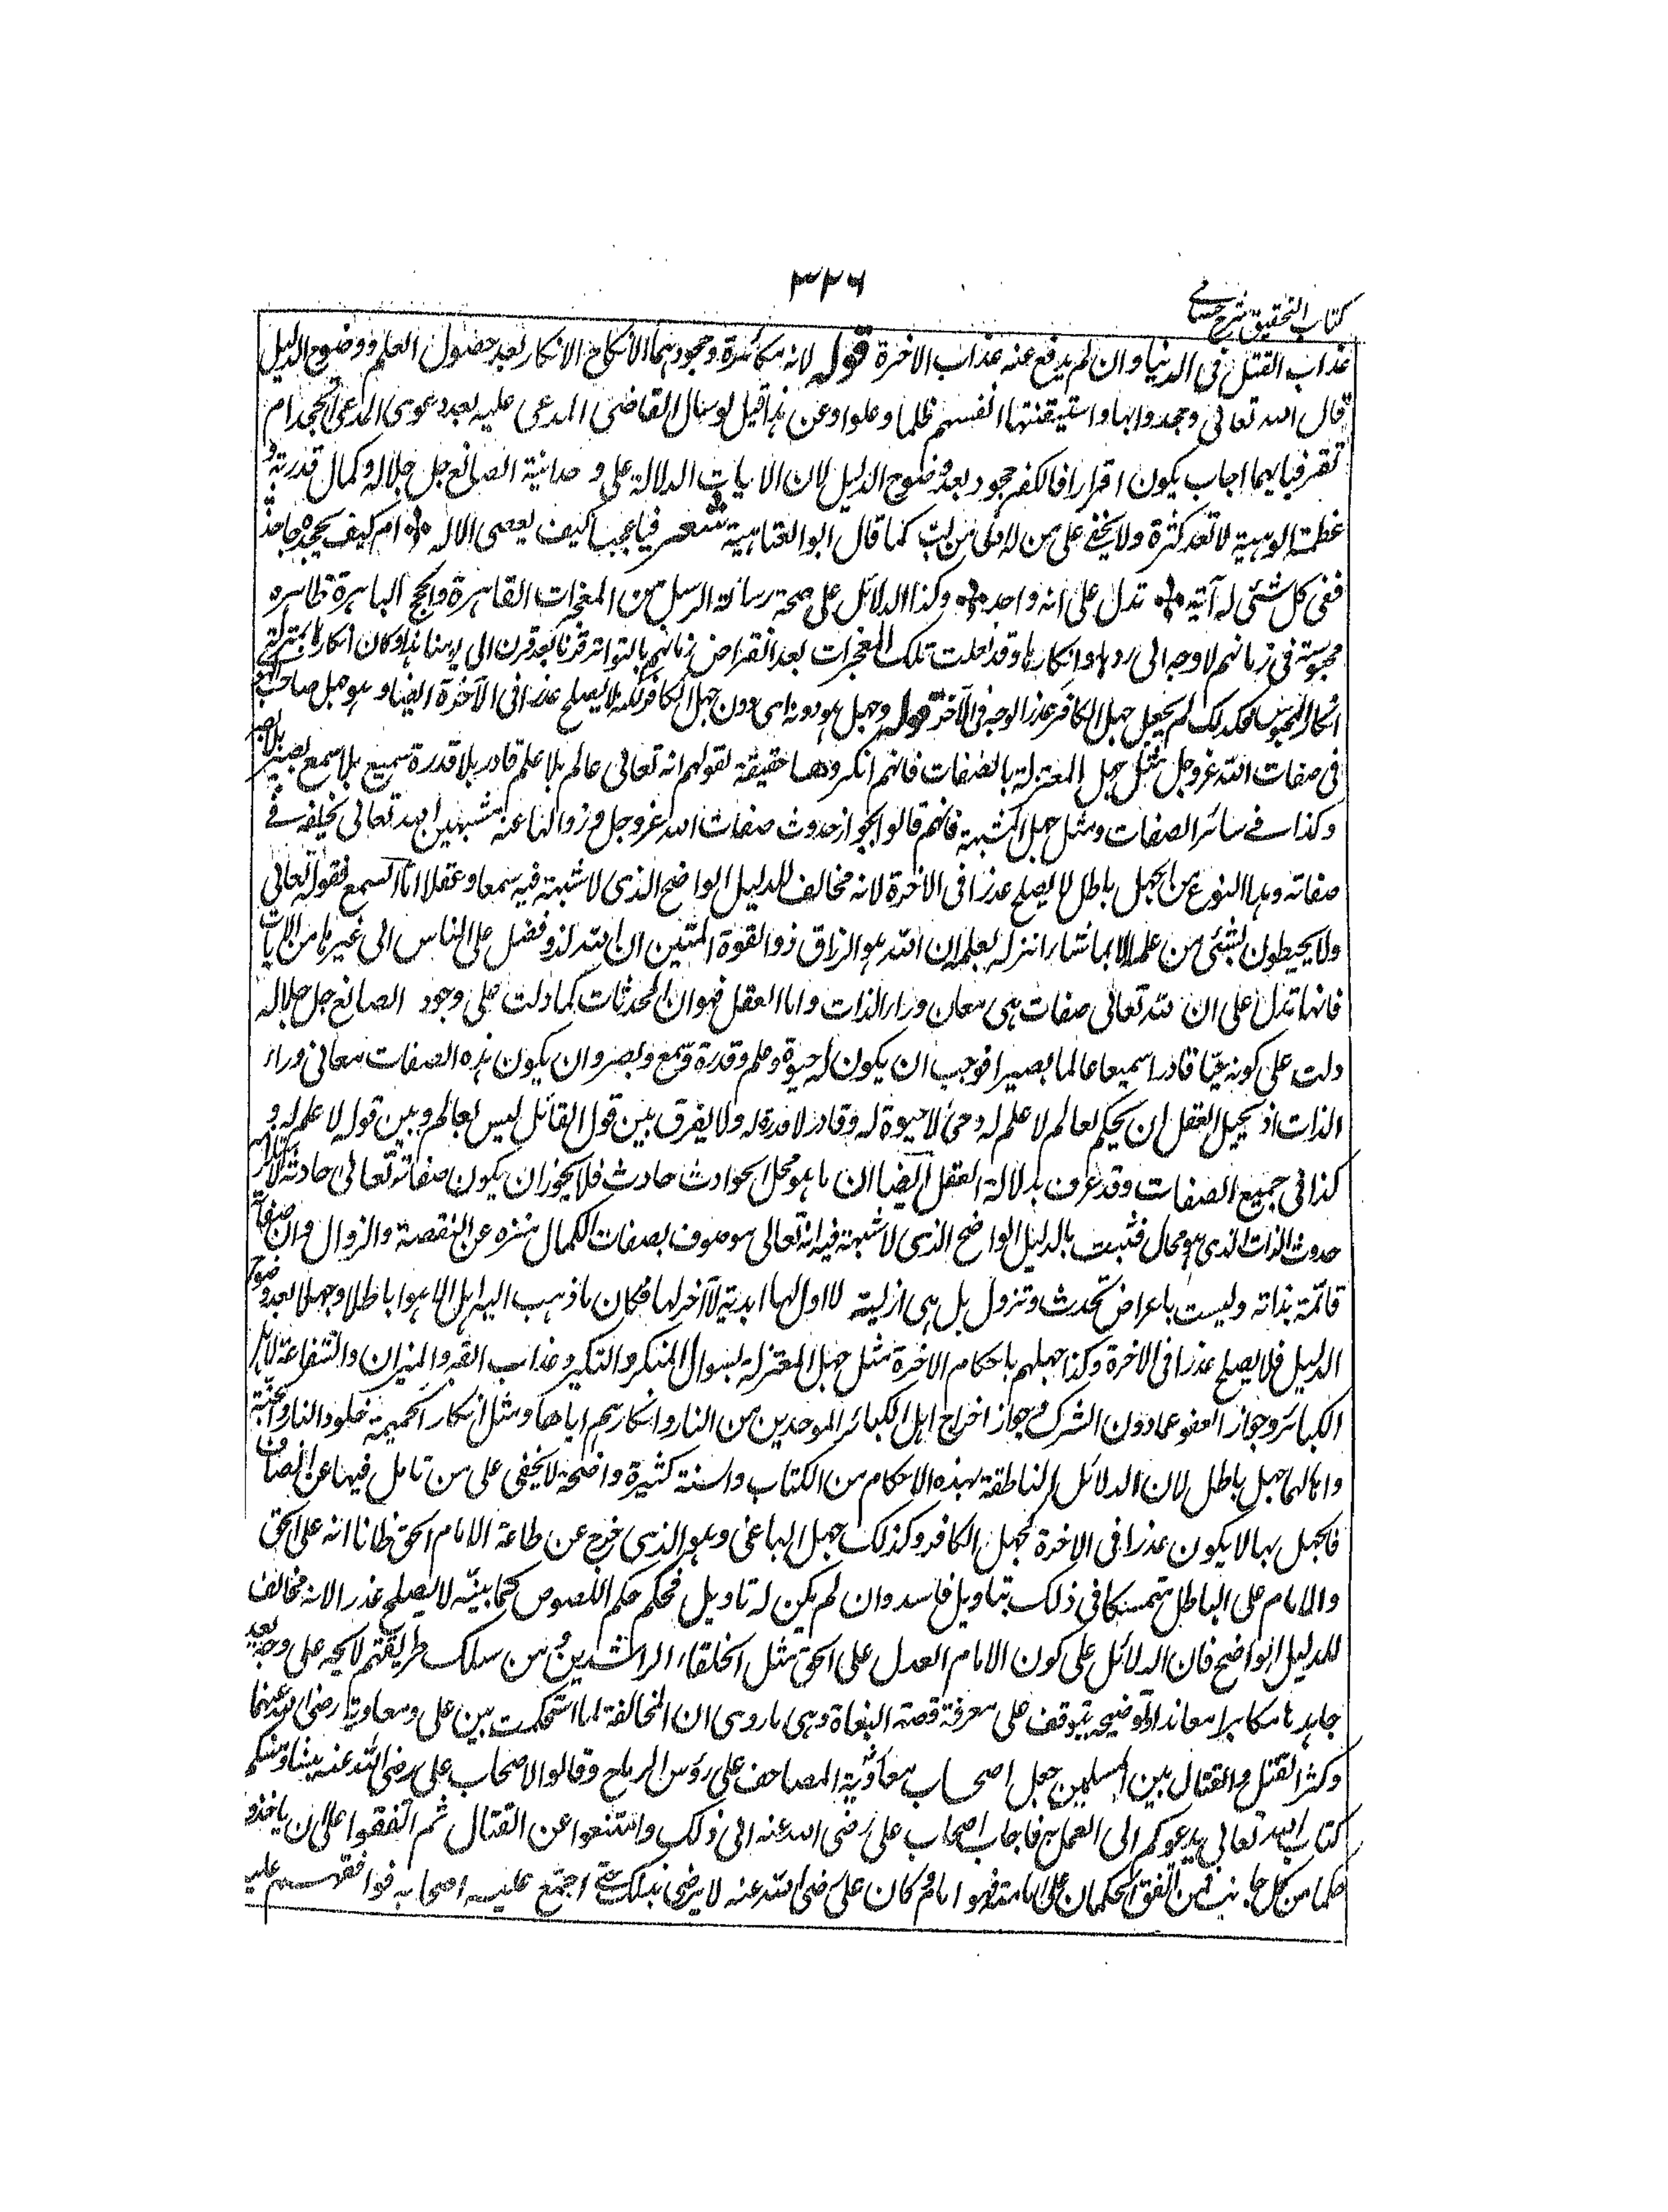 ۳۲۶
کتاب التحقیق شرح حسامی
عذاب القتل فی الدنیا وان لم یدفع عنه عذاب الاخرة قوله لانه مکابرة وجحود هما الانکار الانکار بعد حصول العلم ووضوح الدلیل
قال الله تعالی وجحدوا بها واستیقنتها انفسهم ظلما وعلوا وعن هذا قیل لو سال القاضی المدعی علیه بعد دعوی المدعی اتجحد ام
تقر فبایهما اجاب یکون اقرارا فالکفر جحود بعد وضوح الدلیل لان الایات الدلالة علی وحدانیة الصانع جل جلاله وکمال قدرته و
عظمة الوهیة لا تعد کثرة ولا یخفی علی من له ادنی من لب کما قال ابو العتاهیة شعر فیا عجبا کیف یعصی الاله ام کیف یجحده جاحد
ففی کل شئی له آیة تدل علی انه واحد وکذا الدلائل علی صحة رسالة الرسل من المعجزات القاهرة والحجج الباهرة ظاهره
محسوسة فی زمانهم لا وجه الی ردها وانکارها وقد نقلت تلک المعجزات بعد انقراض زمانهم بالتواتر قرنا بعد قرن الی یومنا هذا وکان انکارها بمنزلة
انکار المحسوس فکذلک لم یجعل جهل الکافر عذرا بوجه فی الآخرة قوله وجهل هو دونه ای دون جهل الکافر لکنه لا یصلح عذرا فی الآخرة ایضا وهو جهل صاحب الهوی
فی صفات الله عز وجل مثل جهل المعتزلة بالصفات فانهم انکروها حقیقة لقولهم انه تعالی عالم بلا علم قادر بلا قدرة سمیع بلا سمع بصیر بلا بصر
وکذا فے سائر الصفات ومثل جهل المشبهة فانهم قالوا بجواز حدوث صفات الله عز وجل وزوالها عنه مشبهین الله تعالی بخلقه فے
صفاته وهذا النوع من الجهل باطل لا یصلح عذرا فی الاخرة لانه مخالف للدلیل الواضح الذی لا شبهة فیه سمعا وعقلا اما السمع فقوله تعالی
ولا یحیطون بشئی من علمه الا بما شاء انزله بعلمه ان الله هو الرزاق ذو القوة المتین ان الله لذو فضل علی الناس الی غیرها من الایات
فانها تدل علی ان لله تعالی صفات هی معان وراء الذات واما العقل فهو ان المحدثات کما دلت علی وجود الصانع جل جلاله
دلت علی کونه حیا قادرا سمیعا عالما بصیرا فوجب ان یکون له حیوة وعلم وقدرة وسمع وبصر وان یکون هذه الصفات معانی وراء
الذات اذ یحیل العقل ان یحکم بعالم لا علم له وحی لا حیوة له وقادر لا قدرة له ولا یفرق بین قول القائل لیس بعالم وبین قوله لا علم له و
کذا فی جمیع الصفات وقد عرف بدلالة العقل ایضا ان ما هو محل الحوادث حادث فلا یجوز ان یکون صفاته تعالی حادثة لاستلزامه
حدوث الذات الذی هو محال فثبت بالدلیل الواضح الذی لا شبهة فیه انه تعالی موصوف بصفات الکمال منزه عن النقیصة والزوال وان صفاته
قائمة بذاته ولیست باعراض تحدث وتزول بل هی ازلیة لا اول لها ابدیة لا آخر لها فکان ما ذهب الیه اهل الاهواء باطلا وجهلا بعد وضوح
الدلیل فلا یصلح عذرا فی الاخرة وکذا جهلهم باحکام الاخرة مثل جهل المعتزلة بسوال المنکر والنکیر وعذاب القبر والمیزان والشفاعة لاهل
الکبائر وجواز العفو عما دون الشرک وجواز اخراج اهل الکبائر الموحدین من النار وانکارهم ایاها ومثل انکار الجهمیة خلود النار والجنة
واهالهما جهل باطل لان الدلائل الناطقة بهذه الاحکام من الکتاب والسنة کثیرة واضحة لا یخفی علی من تامل فیها عن انصاف
فالجهل بها لا یکون عذرا فی الاخرة کجهل الکافر وکذلک جهل الباغی وهو الذی خرج عن طاعة الامام الحق ظانا انه علی الحق
والامام علی الباطل متمسکا فی ذلک بتاویل فاسد وان لم یکن له تاویل فحکمه حکم اللصوص کما بینه لا یصلح عذرا لانه مخالف
للدلیل الواضح فان الدلائل علی کون الامام العدل علی الحق مثل الخلفاء الراشدین ومن سلک طریقتهم لایحه علی وجه یعد
جاهدها مکابرا معاندا وتوضیحه یتوقف علی معرفة قصة البغاة وهی ما روی ان المخالفة لما استحکمت بین علی ومعاویة رضی الله عنهما
وکثر القتل والقتال بین المسلمین جعل اصحاب معاویة المصاحف علی رؤس الرماح وقالوا لاصحاب علی رضی الله عنه بیننا وبینکم
کتاب الله تعالی یدعوکم الی العمل به فاجاب اصحاب علی رضی الله عنه الی ذلک وامتنعوا عن القتال ثم اتفقوا علی ان یاخذوا
حکما من کل جانب فمن اتفق الحکمان علی امامته فهو امام وکان علی رضی الله عنه لا یرضی بذلک حتی اجتمع علیه اصحابه فوافقهم علیه